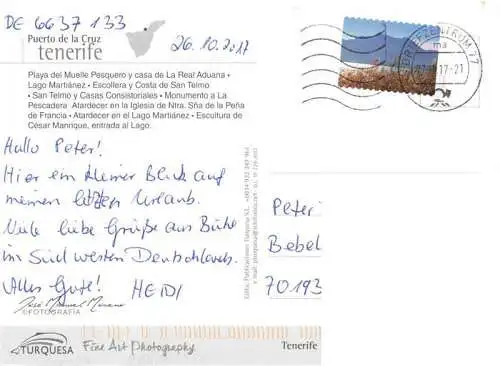 DE 6637 133
Puerto de la Cruz
tenerife
26.10.2017
Playa del Muelle Pesquero y casa de La Real Aduana •
Lago Martiánez • Escollera y Costa de San Telmo
• San Telmo y Casas Consistoriales • Monumento a La
Pescadera Atardecer en la Iglesia de Ntra. Sña de la Peña
de Francia • Atardecer en el Lago Martiánez • Escultura de
César Manrique, entrada al Lago.
Hallo Peter!
Hier ein kleiner Blick auf
meinen letzten Urlaub.
Viele liebe Grüße aus
im Süd westen Deutschlands.
Alles Gute! HEIDI
José Manuel Moreno
©FOTOGRAFÍA
TURQUESA
Fine Art Photography
Tenerife
Edita: Publicaciones Turquesa S.L.
BRIEFZENTRUM 77
ma
17-21
Peter
Bebel
70193